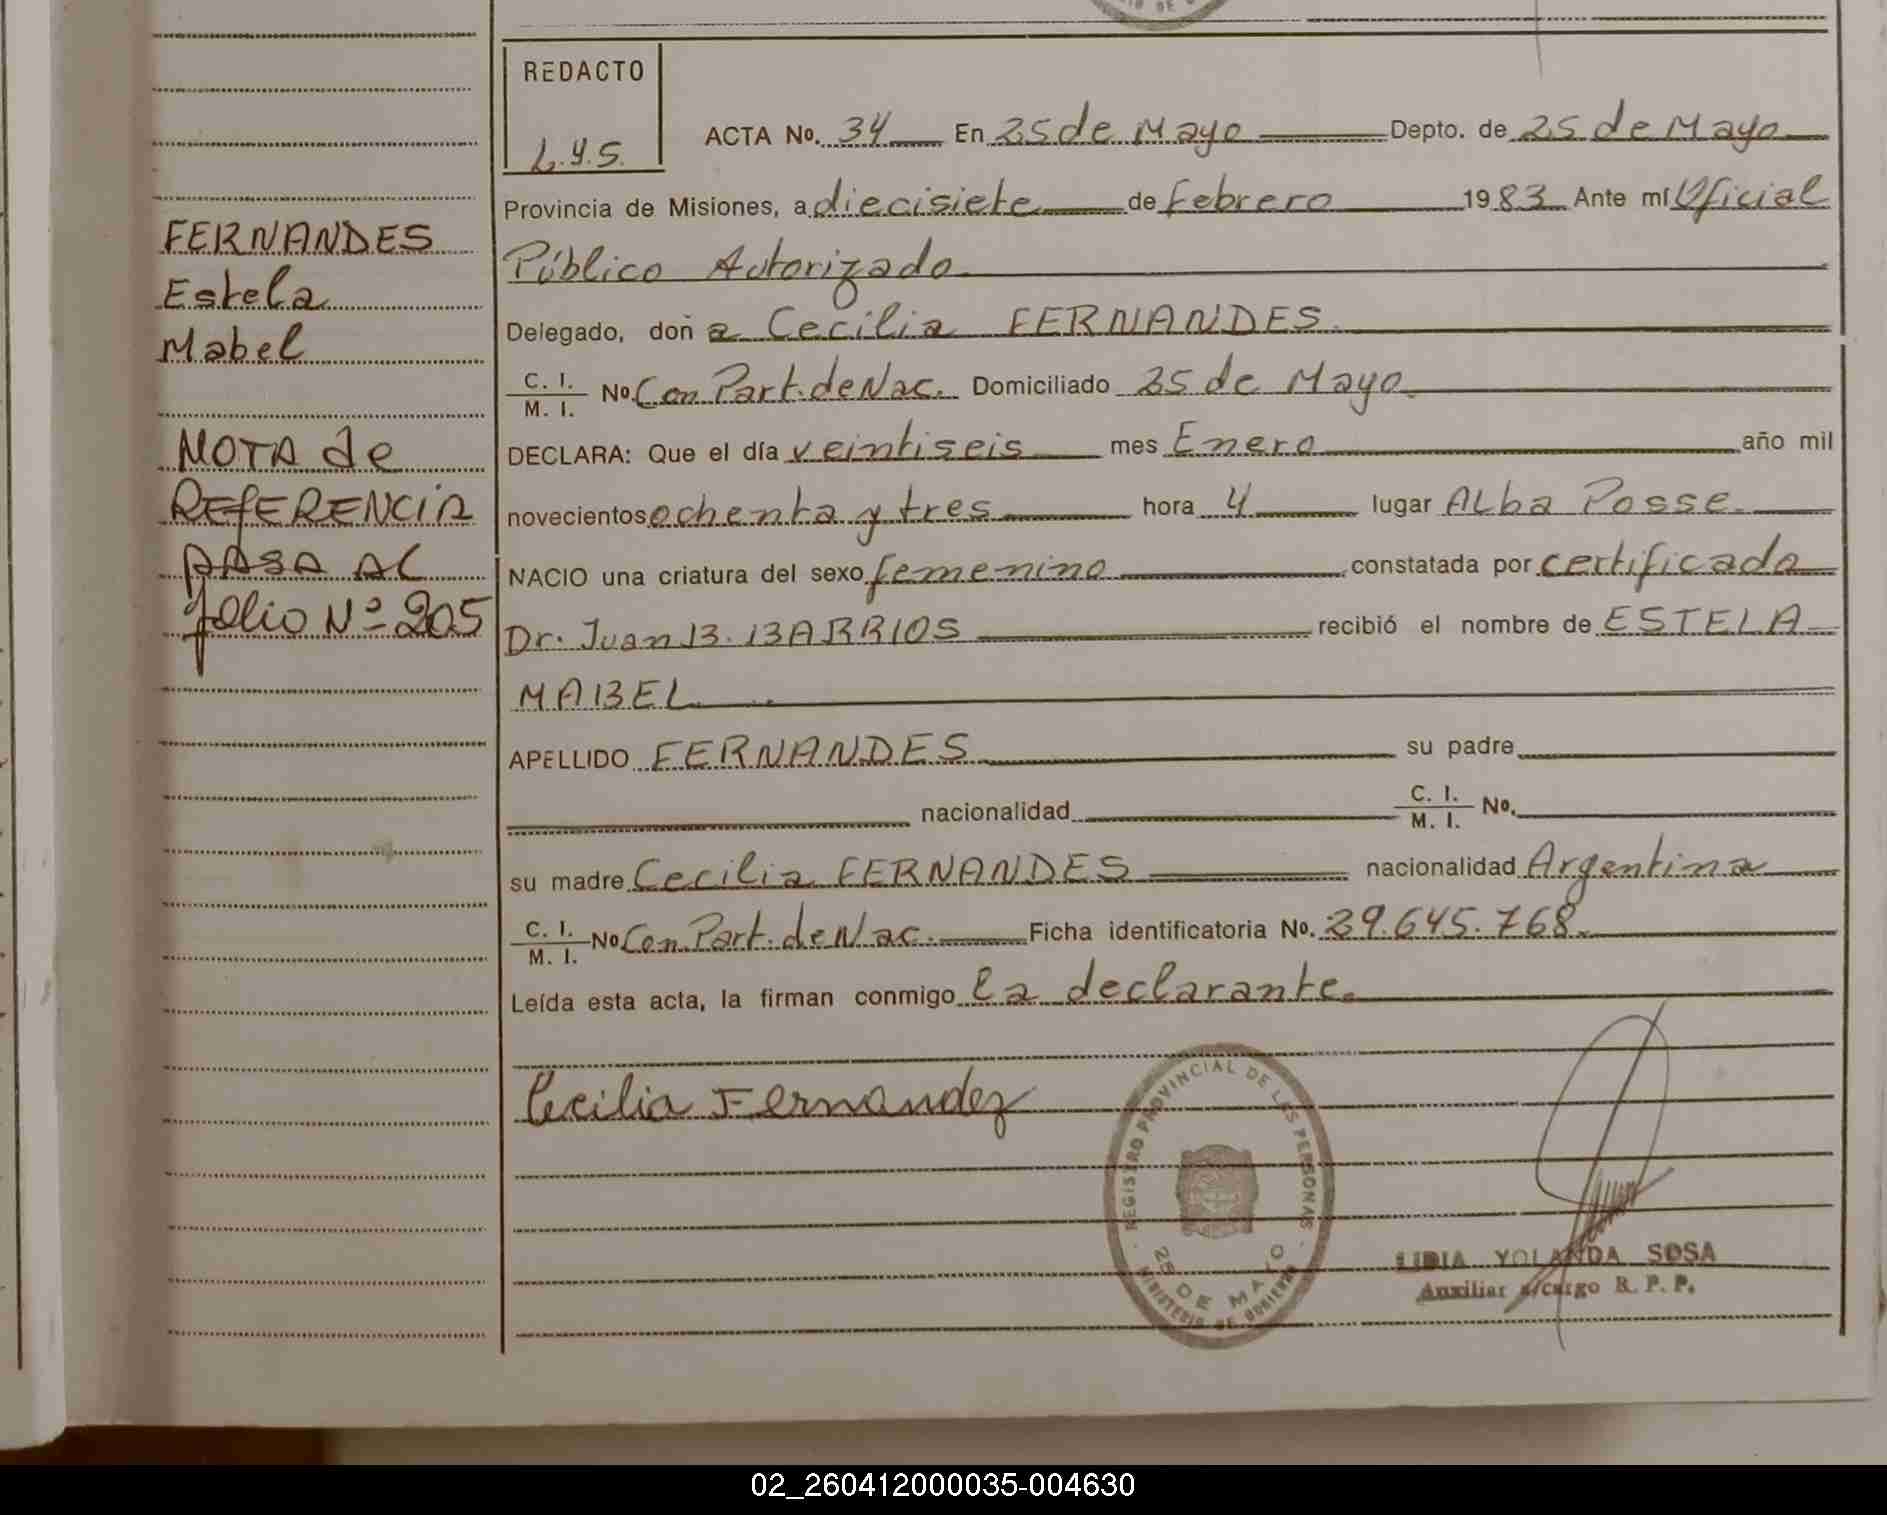 REDACTO
L.Y.S.
ACTA No. 34 En 25 de Mayo Depto. de 25 de Mayo
Provincia de Misiones, a diecisiete de febrero 1983 Ante mí Oficial
Público Autorizado
Delegado, doñ a Cecilia FERNANDES.
C. I.
M. I. No. Con Part. de Nac. Domiciliado 25 de Mayo.
DECLARA: Que el día veintiseis mes Enero año mil
novecientos ochenta y tres hora 4 lugar Alba Posse.
NACIO una criatura del sexo femenino constatada por certificado
Dr. Juan B. BARRIOS recibió el nombre de ESTELA
MABEL
APELLIDO FERNANDES su padre
nacionalidad C. I.
M. I. No.
su madre Cecilia FERNANDES nacionalidad Argentina
C. I.
M. I. No Con Part. de Nac. Ficha identificatoria No. 29.645.768.
Leída esta acta, la firman conmigo la declarante.
Cecilia Fernandez
REGISTRO PROVINCIAL DE LAS PERSONAS
25 DE MAYO
MINISTERIO DE GOBIERNO
LIDIA YOLANDA SOSA
Auxiliar a/cargo R. P. P.
FERNANDES
Estela
Mabel
NOTA de
REFERENCIA
PASA AL
folio Nº 205
02_260412000035-004630